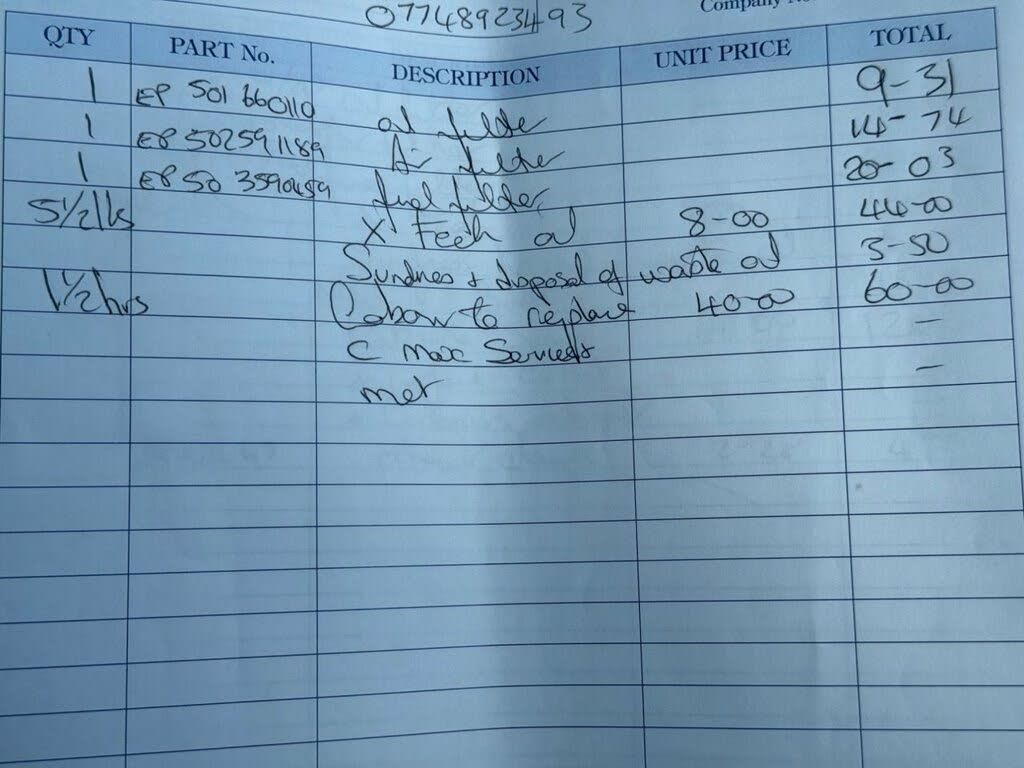 07748923493
Company
QTY PART No. DESCRIPTION UNIT PRICE TOTAL
1 EP 501 660110 oil filter 9-31
1 EP 502591189 Air filter 14-74
1 EP 50 3590489 fuel filter 20-03
5½ lts X Tech oil 8-00 44-00
Sundries + disposal of waste oil 3-50
1½ hrs Labour to replace 40-00 60-00
C max Serviced —
—